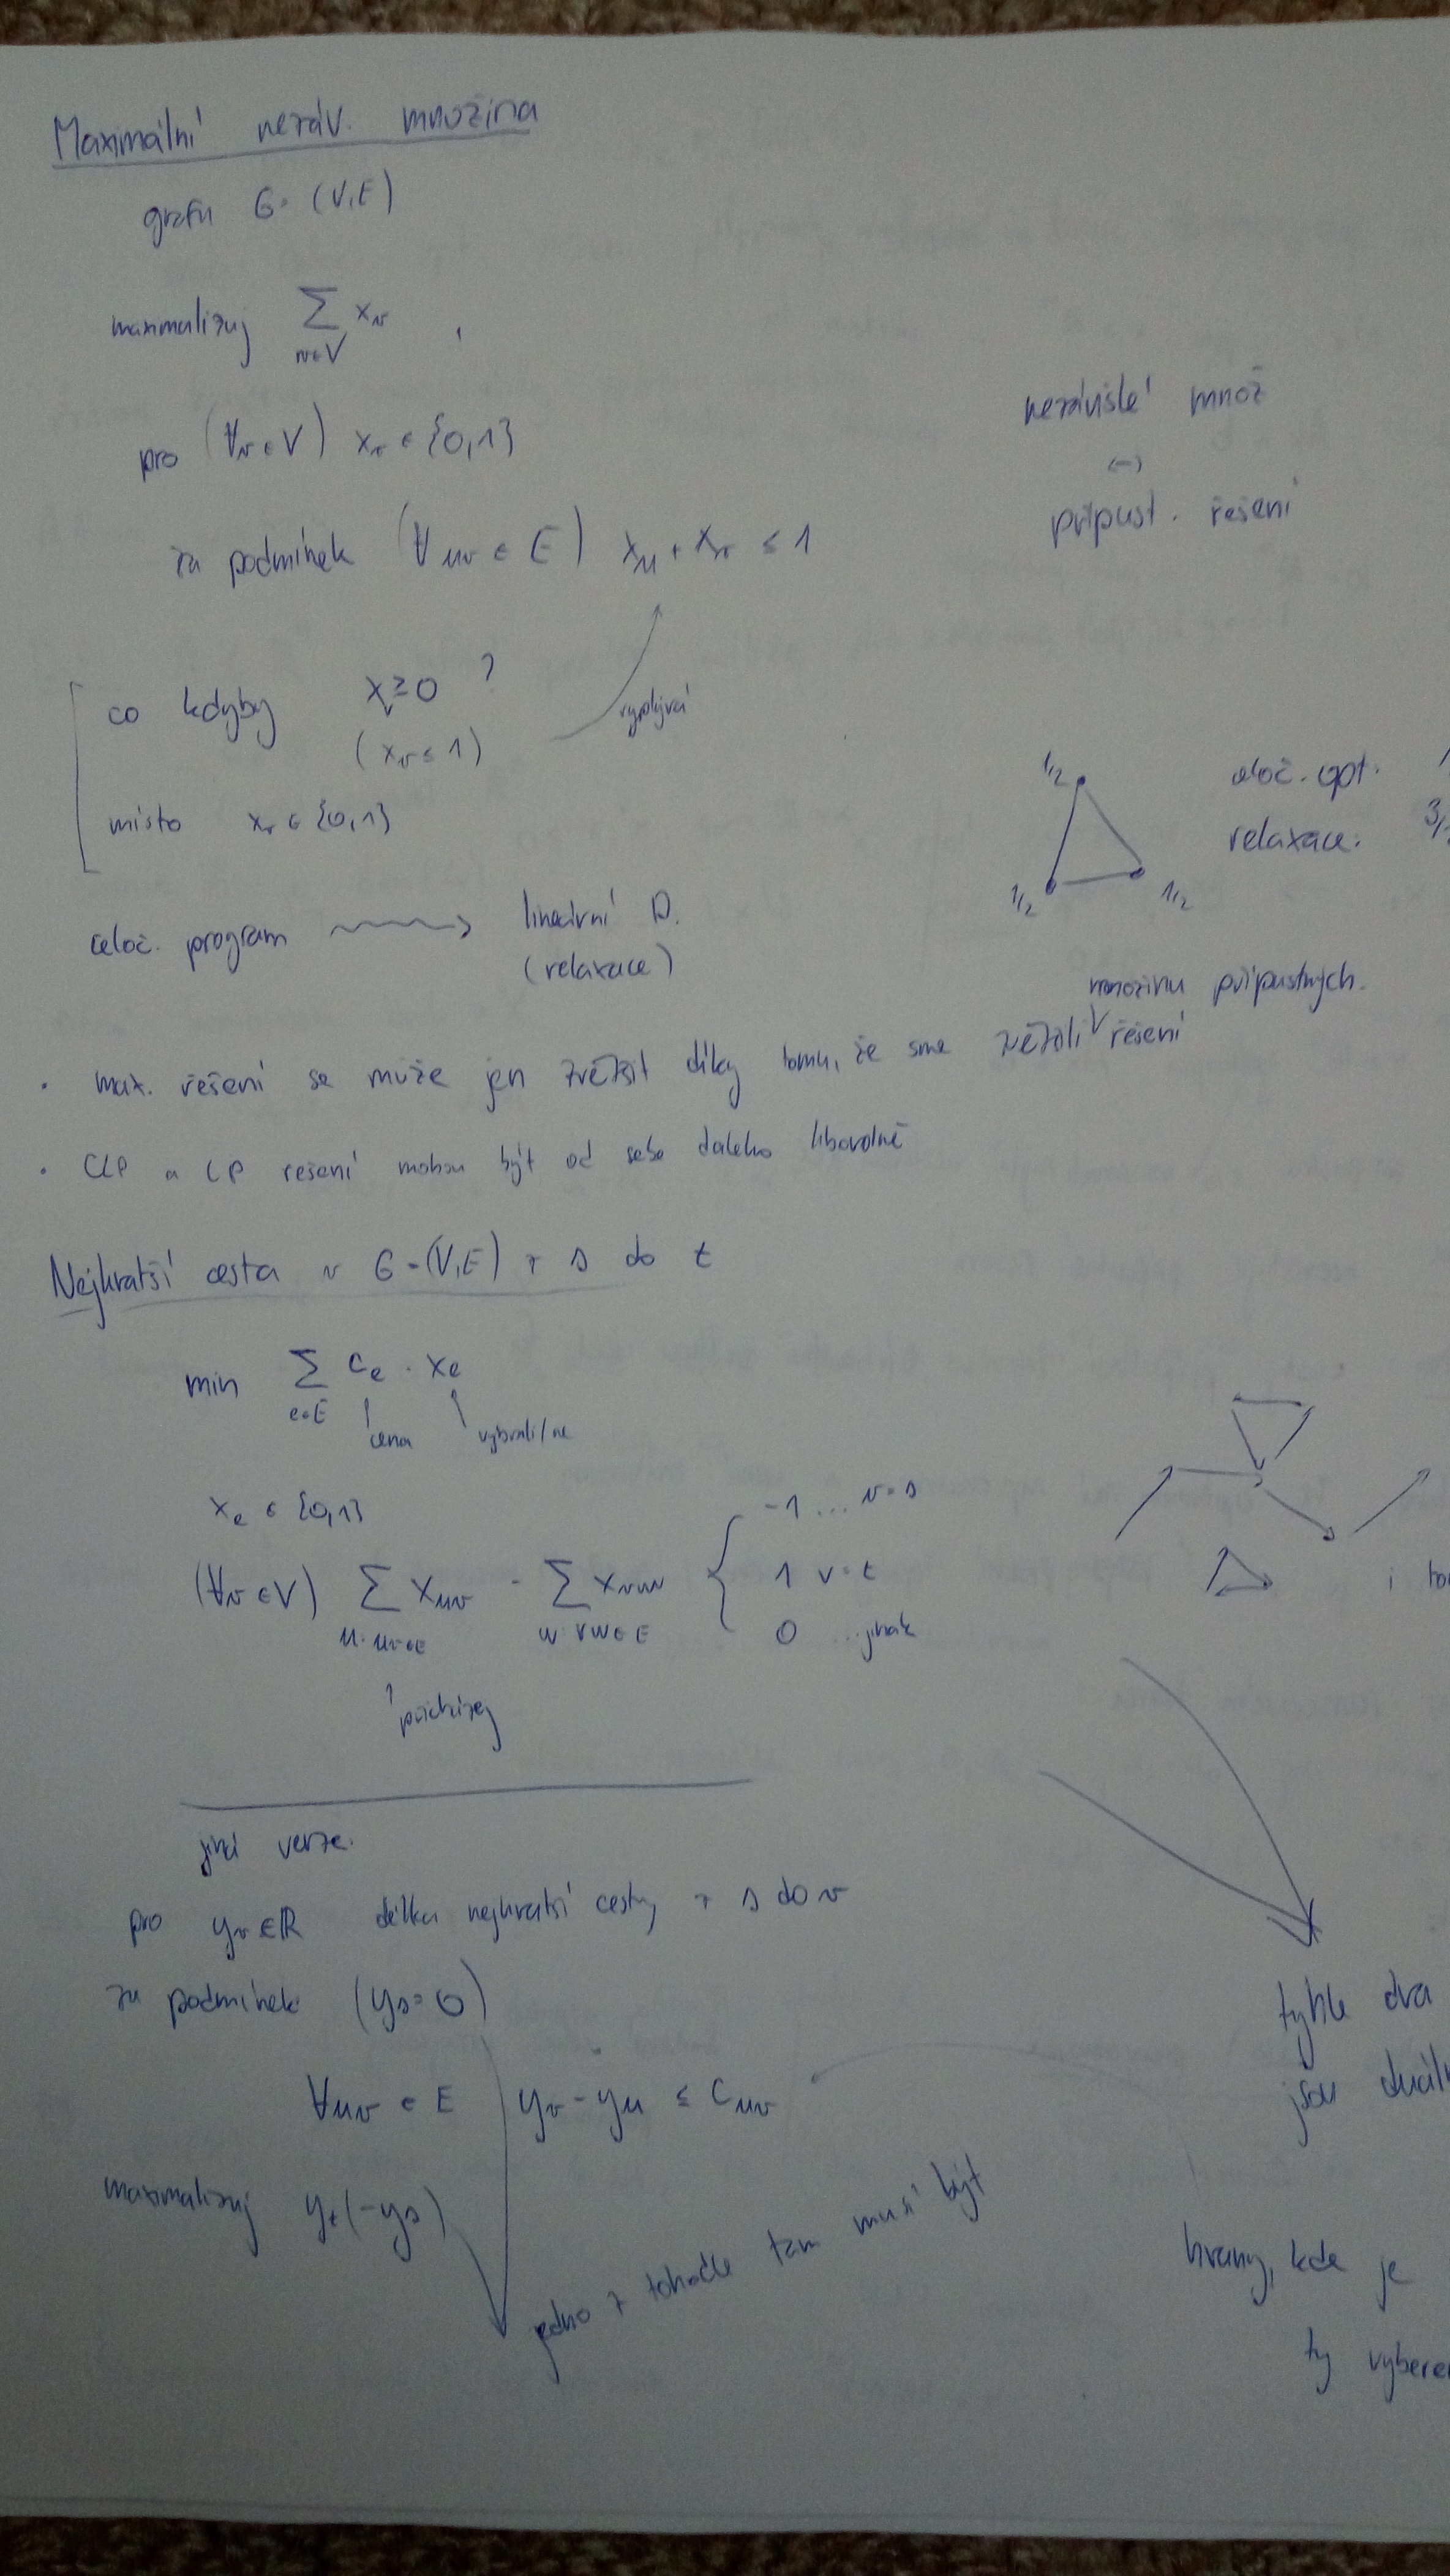 Maximální nezáv. množina
grafu G = (V,E)
maximalizuj ∑ xᵥ
v∈V
pro (∀v ∈ V) xᵥ ∈ {0,1}
za podmínek (∀uv ∈ E) xᵤ + xᵥ ≤ 1
nezávislé množ
↔
přípust. řešení
co kdyby xᵥ ≥ 0 ?
(xᵥ ≤ 1)
vyplývá
místo xᵥ ∈ {0,1}
1/2
1/2
1/2
celoč. opt.
relaxace:
celoč. program ⟶ lineární P.
(relaxace)
množinu přípustných
• max. řešení se může jen zvětšit díky tomu, že sme zvětšili řešení
• CLP a LP řešení mohou být od sebe daleko libovolně
Nejkratší cesta v G = (V,E) z s do t
min ∑ cₑ · xₑ
e∈E
cena
vybrali/ne
xₑ ∈ {0,1}
(∀v ∈ V) ∑ xᵤᵥ - ∑ xᵥw { -1 ... v = s
1 v = t
0 ... jinak
u: uv∈E
w: vw∈E
přicházej
i
jiná verze:
pro yᵥ ∈ ℝ délka nejkratší cesty z s do v
za podmínek (yₛ = 0)
∀uv ∈ E yᵥ - yᵤ ≤ cᵤᵥ
maximalizuj yₜ (-yₛ)
jedno z tohodle tam musí být
tyhle dva
jsou
hrany, kde je
ty